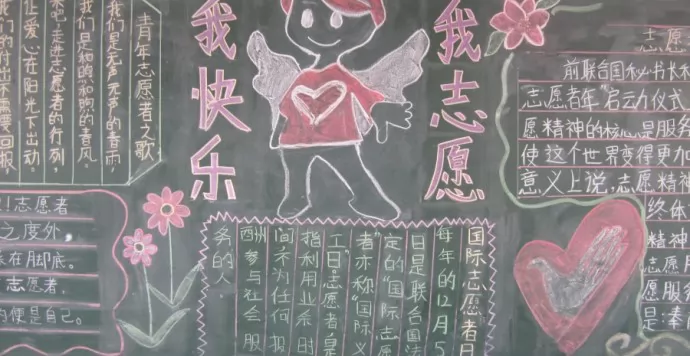 青年志愿者之歌
我们是无声无声的春雨,
我们是和煦和煦的春风。
来吧走进志愿者的行列,
让爱心在阳光下出动。
们的付出不需要回报,
志愿者
之度外,
在脚底。
志愿者,
的便是自己。
我志愿
我快乐
国际志愿者日
每年的12月5
日是联合国法
定的"国际志愿
者亦称"国际义
工日"志愿者是
指利用业余时
间不为任何报
酬参与社会服
务的人.
志愿
前联合国秘书长
志愿者年"启动仪式
愿精神的核心是服务
使这个世界变得更加
意义上说,志愿精神
终体
精神
志愿
愿服务
是:奉